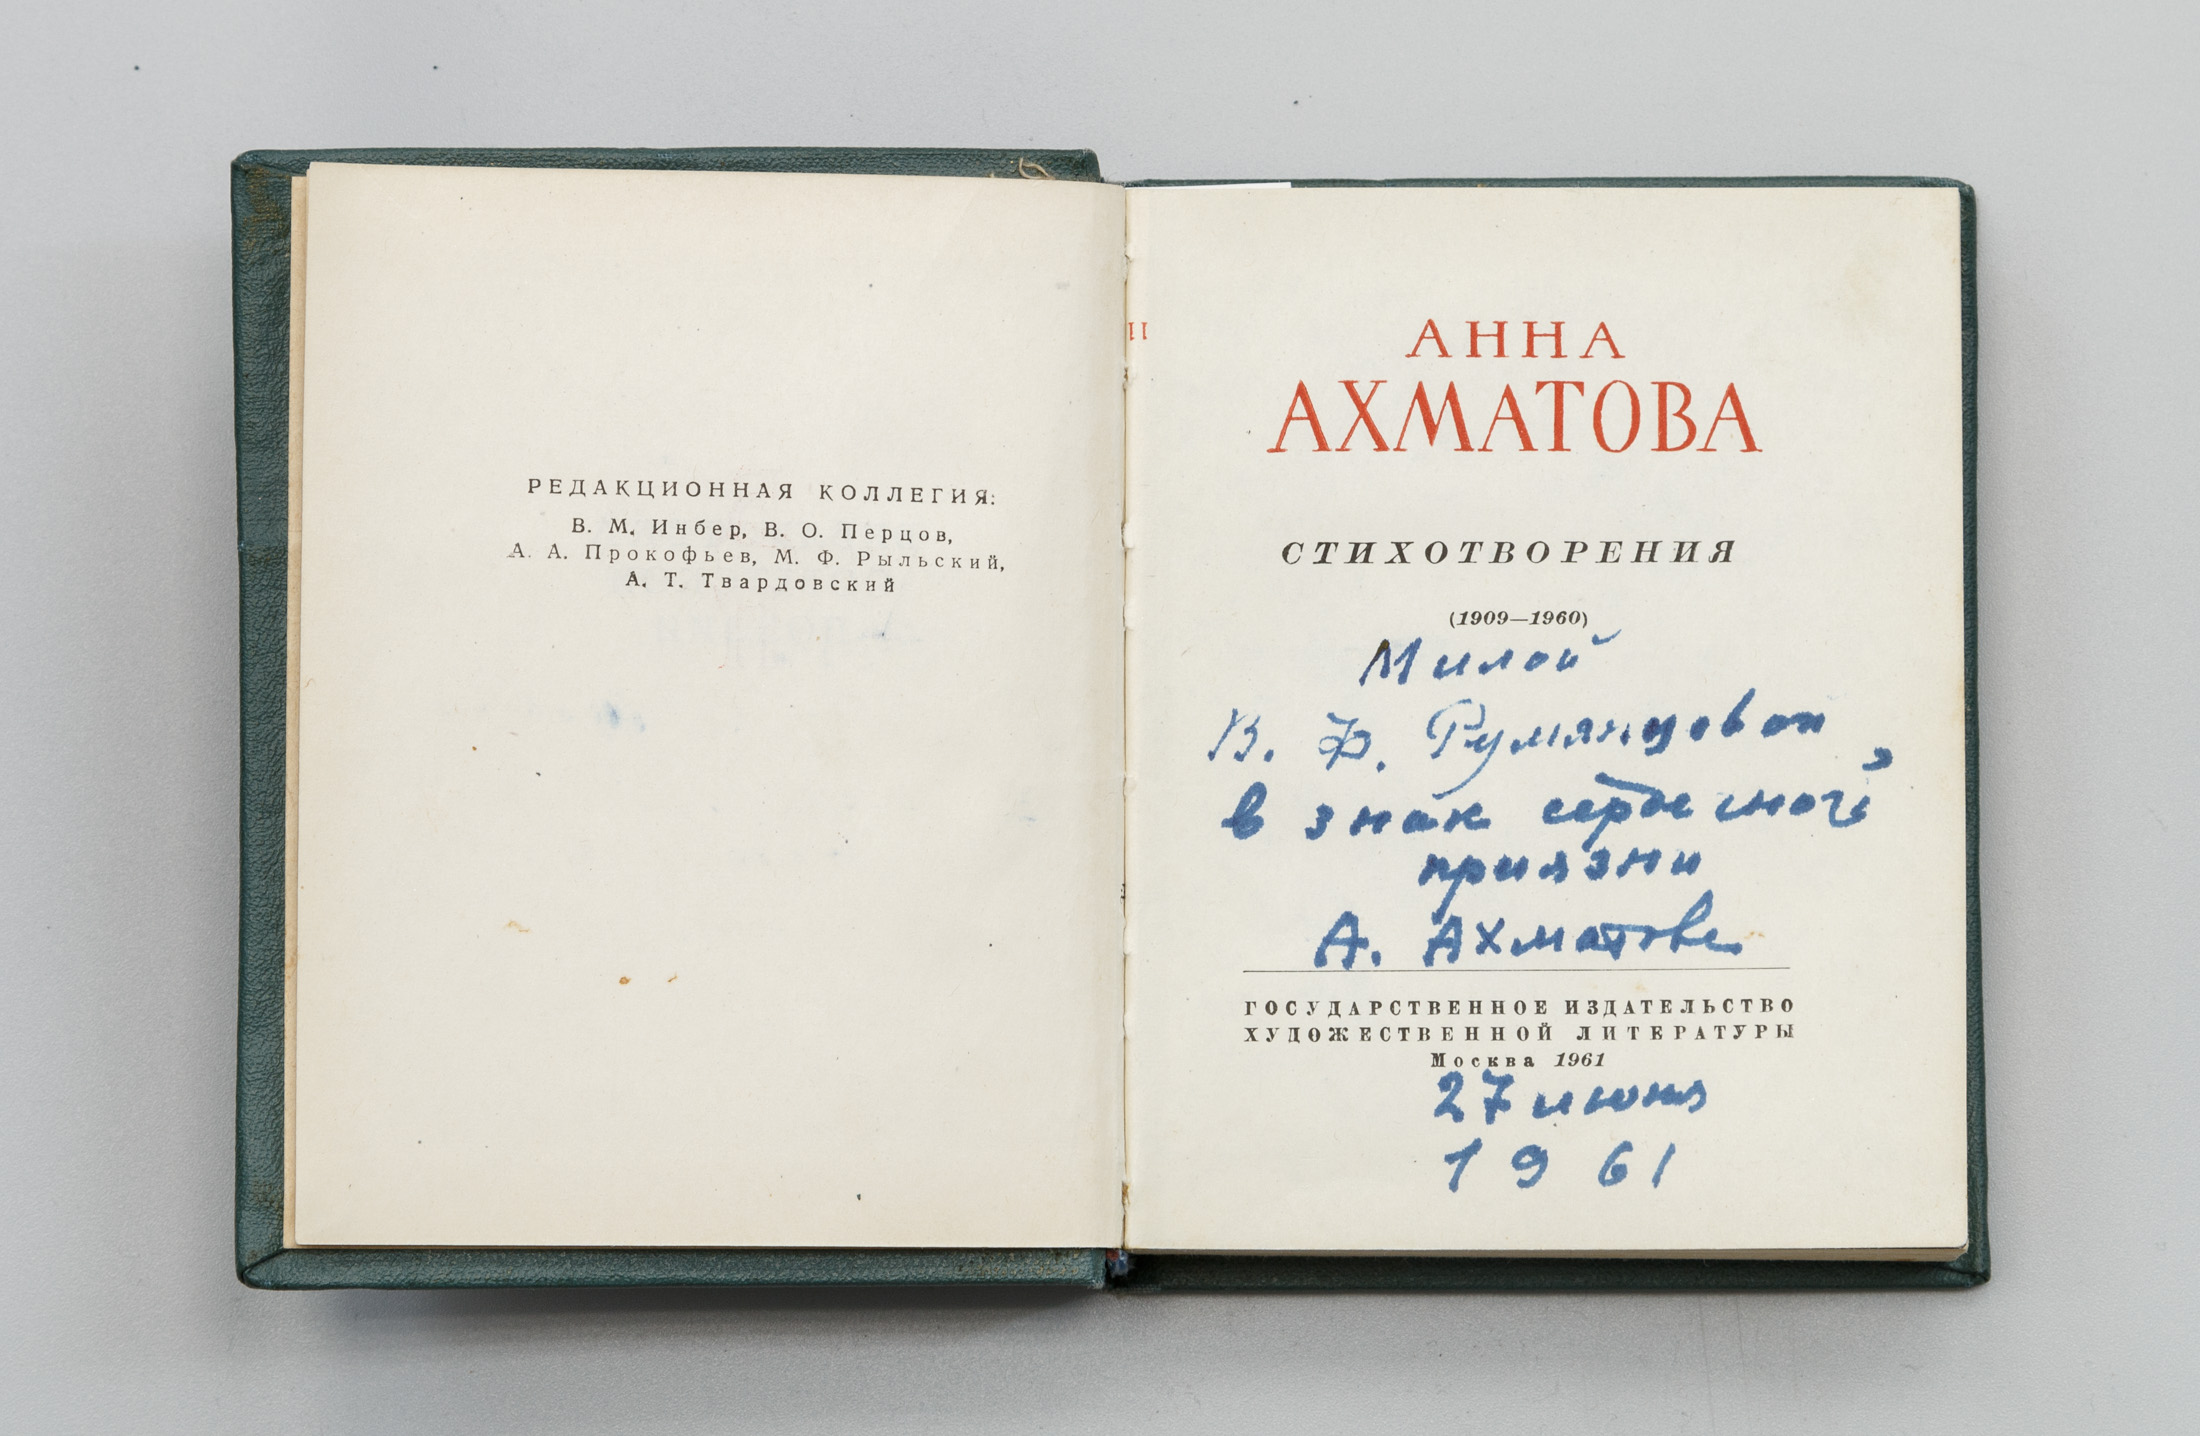 РЕДАКЦИОННАЯ КОЛЛЕГИЯ:
В. М. Инбер, В. О. Перцов,
А. А. Прокофьев, М. Ф. Рыльский,
А. Т. Твардовский
АННА
АХМАТОВА
СТИХОТВОРЕНИЯ
(1909—1960)
Милой
В. Ф. Румянцевой,
в знак сердечной
приязни
А. Ахматова
ГОСУДАРСТВЕННОЕ ИЗДАТЕЛЬСТВО
ХУДОЖЕСТВЕННОЙ ЛИТЕРАТУРЫ
Москва 1961
27 июня
1961